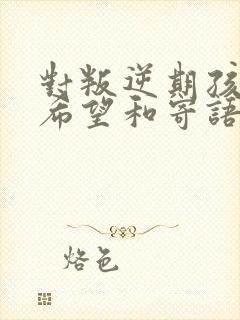 對叛逆期孩
希望和寄語
烙色